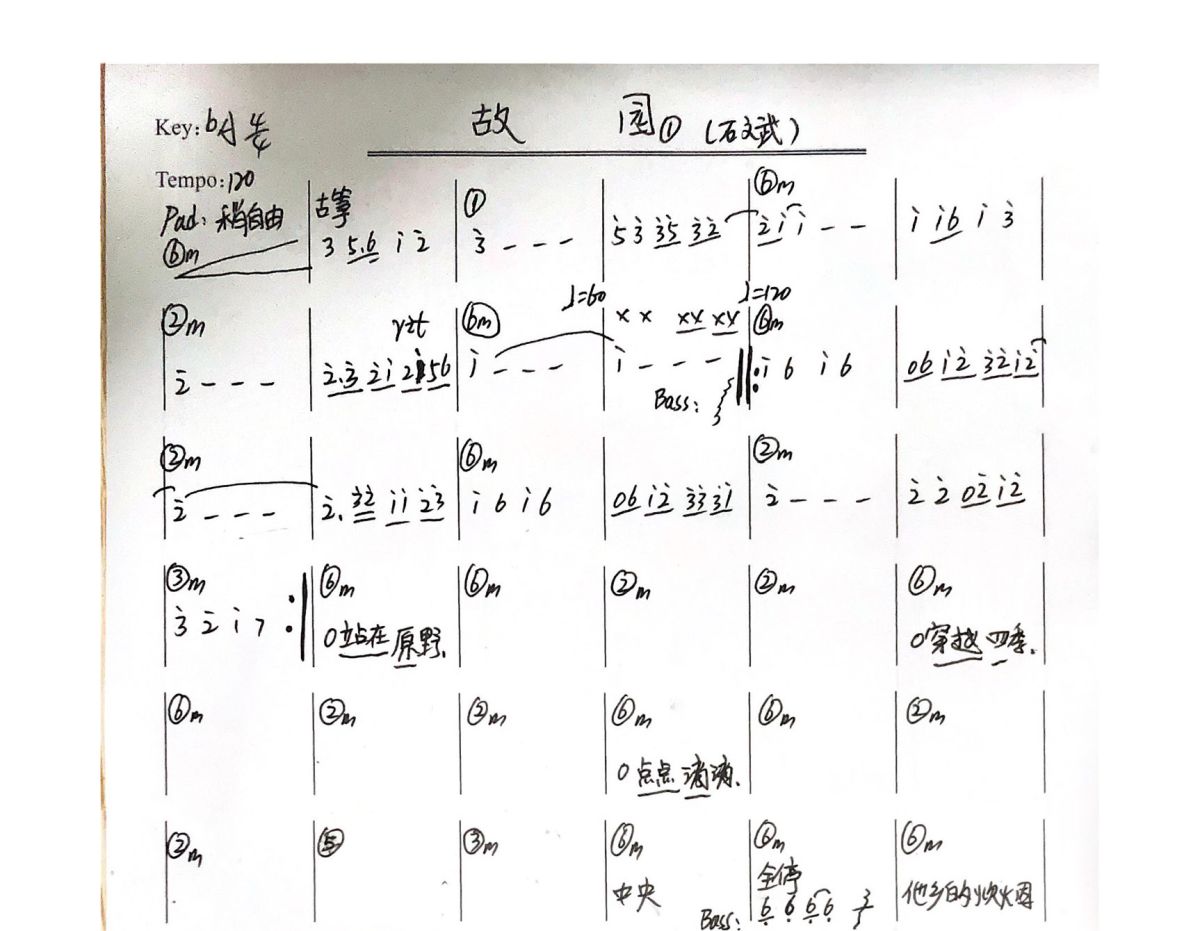 Key: bA 4/4 故 园① (石文武)
Tempo: 120
Pad: 稍自由 古筝 ① ⑥m
⑥m 3 5.6 i 2̇ 3̇ - - - 5 3̇ 3̇5 3̇2̇ 2̇i i - - i i6 i 3̇
♩=60 ♩=120
②m rit ⑥m x x xx xx ⑥m
2̇ - - - 2̇.3̇ 2̇i 56 i - - - i - - - ‖: i 6 i 6 06 i2̇ 3̇2̇ i2̇
Bass:
②m ⑥m ②m
2̇ - - - 2̇. 3̇2̇ ii 2̇3̇ i 6 i 6 06 i2̇ 3̇3̇ 3̇i 2̇ - - - 2̇ 2̇ 02̇ i2̇
③m ⑥m ⑥m ②m ②m ⑥m
3̇ 2̇ i 7 :‖ 0站在原野. 0穿越四季.
⑥m ②m ②m ⑥m ⑥m ②m
0点点滴滴.
②m ⑤ ③m ⑥m ⑥m ⑥m
中央 全停 他乡的炊火
Bass: 6̣ 6̣ 6̣6̣